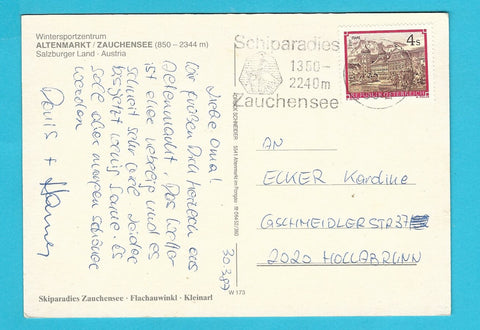 Wintersportzentrum
ALTENMARKT / ZAUCHENSEE (850 – 2344 m)
Salzburger Land · Austria
Schiparadies
1350 –
2240m
Zauchensee
4 S
REPUBLIK ÖSTERREICH
Liebe Oma!
Wir grüßen Dich herzlich aus
Altenmarkt. Das Wetter
ist eher neblig und es
schneit sehr viel. Leider
bis jetzt wenig Sonne. Es
soll aber morgen schöner
werden
Doris +
30.3.87
AN
ECKER Karoline
GSCHMEIDLERSTR 37
2020 HOLLABRUNN
Skiparadies Zauchensee · Flachauwinkl · Kleinarl
W 173